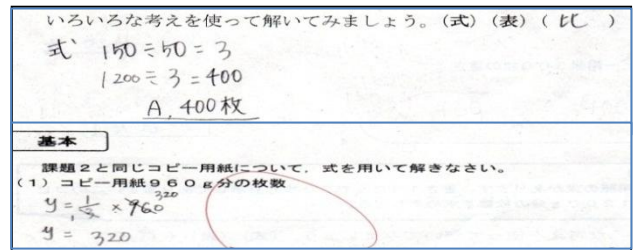 いろいろな考えを使って解いてみましょう。(式)(表)(比)
式 150÷50=3
1200÷3=400
A, 400枚
基本
課題2と同じコピー用紙について,式を用いて解きなさい。
(1)コピー用紙960g分の枚数
y=1/3×960 320
y= 320